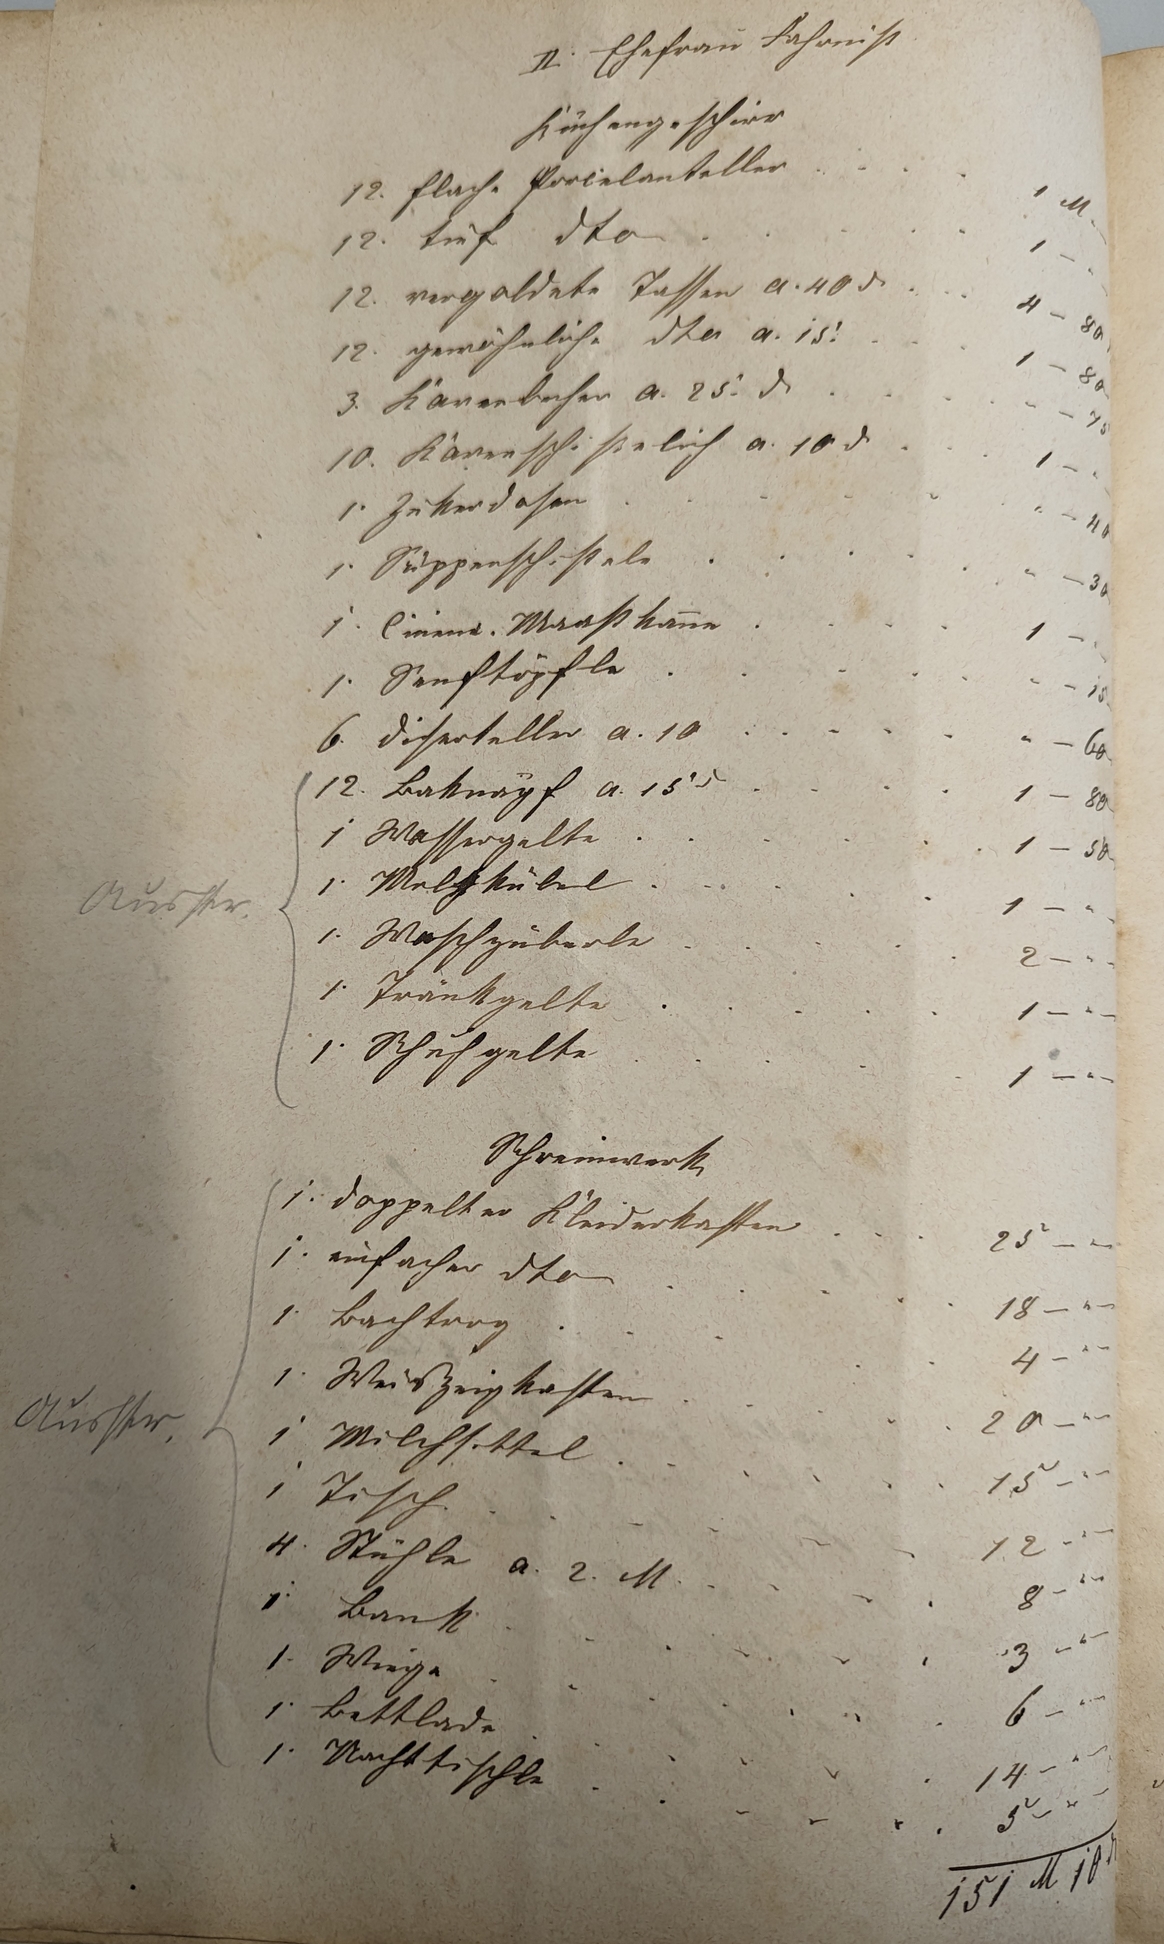 II. Ehefrau Fahrniß
Küchengeschirr
12. flache Porcelanteller . . . . 1 M.
12. tief dto . . . . . 1 - "
12. vergoldete Tassen a. 40 d . . . 4 - 80
12. gewöhnliche dto a. 15. . . . 1 - 80
3. a. 25. d . . . . " - 75
10. a. 10 d . . . 1 - "
1. Zukerdosen . . . . . " - 40
1. Suppenschissele . . . . . " - 30
1. Maaskanne . . . . 1 - "
1. Senftöpfle . . . . . " - 15
6. Diserteller a. 10 . . . . . " - 60
12. Baknäpf a. 15 d . . . . 1 - 80
1 Wassergelte . . . . . 1 - 50
1. Melkkübel . . . . . 1 - "
Ausstr.
1. Waschzüberle . . . . . 2 - "
1. Tränkgelte . . . . . 1 - "
1. Schuhgelte . . . . 1 - "
Schreinwerk
1. doppelter Kleiderkasten . . . 25 - "
1. einfacher dto . . . . . 18 - "
1. Bachtrog . . . . 4 - "
1. Weiszeigkasten . . . . 20 - "
Aussttr.
1 Milchsettel . . . . . 15 - "
1 Tisch . . . . . 12 - "
4. Stühle a. 2. M. . . . . 8 - "
1. Bank . . . . . 3 - "
1. Wiege . . . . . 6 - "
1. Bettlade . . . . . 14 - "
1. Nachttischle . . . . . 5 - "
151 M 10 d